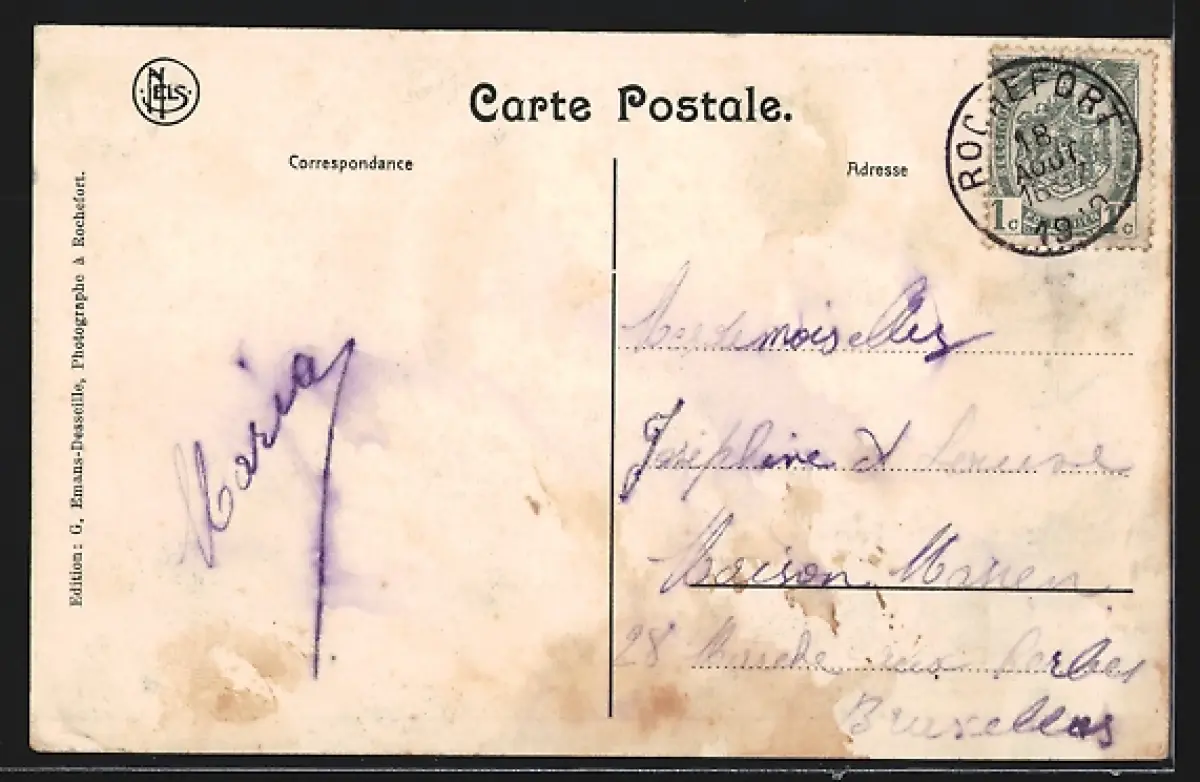 NELS
Carte Postale.
Correspondance
Adresse
ROCHEFORT
18
AOUT
19
1c
Edition: G. Emans-Desseille, Photographe à Rochefort.
Maria
Mesdemoiselles
Joséphine et
Maison
28 Marché aux herbes
Bruxelles